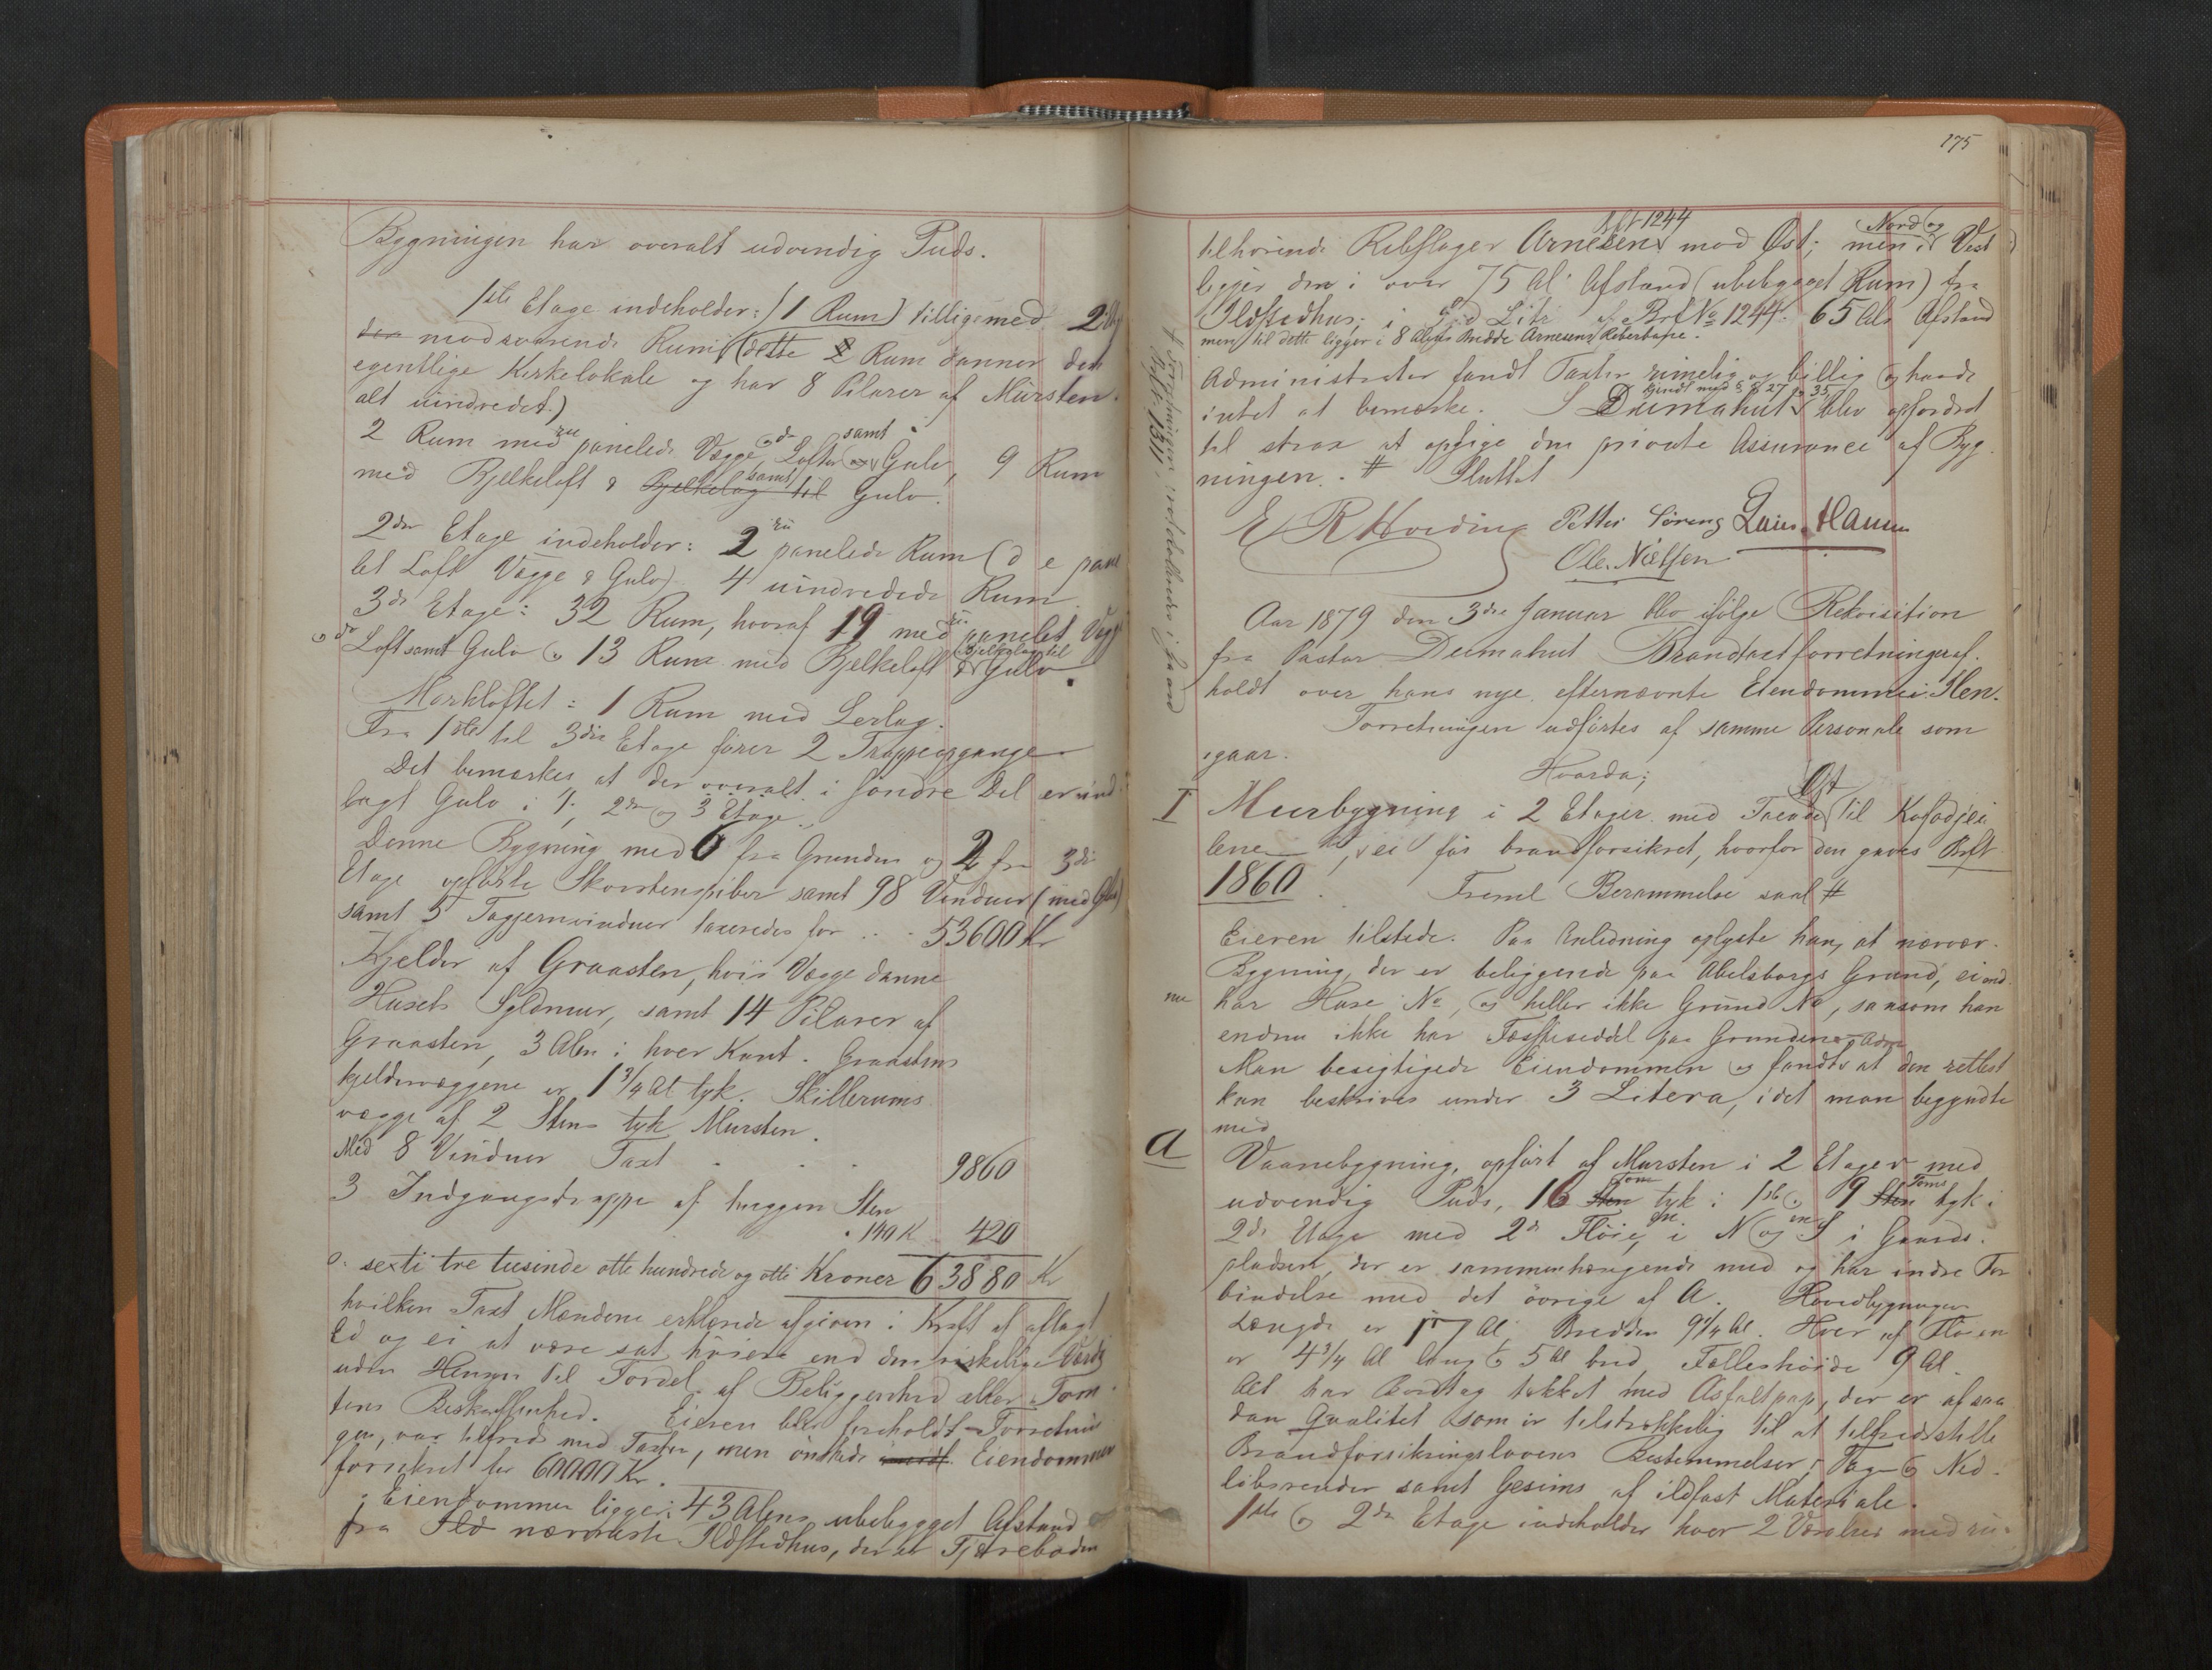 Bygningen har overalt udvendig Puds.
1ste Etage indeholder: (1 Rum) tilligemed 2
den modsvarende Rum (dette 2 Rum danner den
egentlige Kirkelokale og har 8 Pilarer af Mursten
alt uindredet.)
2 Rum med panelede Vægge, Lofter og samt Gulv, 9 Rum
med Bjelkeloft & Bjelkelag til samt Gulv.
2den Etage indeholder: 2 panelede Rum (d e pane
let Loft Vægge & Gulv). 4 uindredede Rum.
3de Etage: 32 Rum, hvoraf 19 med panelet Vægge
Loft samt Gulv og 13 Rum med Bjelkeloft & Bjelkelag til Gulv.
Mørkloftet: 1 Rum med Lerlag.
Fra 1ste til 3die Etage fører 2 Trappeopgange
Det bemærkes at der overalt i søndre Del er ind
lagt Gulv i 1, 2den og 3 Etage.
Denne Bygning med 6 fra Grunden og 2 fra 3die
Etage opførte Skorstenspiber samt 98 Vinduer (med Glas)
samt 5 Tagjernvinduer taxeredes for . . . 53600 Kr
Kjelder af Graasten, hvis Vægge danne
Husets Syldmur, samt 14 Pilarer af
Graasten, 3 Alen i hver Kant. Graastens
kjeldervæggene er 1 3/4 Al tyk. Skillerums
vægge af 2 Stens tyk Mursten.
Med 8 Vinduer Taxt . . . 9860
3 Indgangstrappe af huggen Sten
. 140 K 420
sexti tre tusinde otte hundrede og otti Kroner 63880 Kr
hvilken Taxt Mændene erklærede afgiven i Kraft af aflagt
Ed og ei at være sat høiere end den virkelige Værdi
uden Hensyn til Fordel af Beliggenhed eller Tom
tens Beskaffenhed. Eieren blev foreholdt Forretnin
gen, var tilfreds med Taxten, men ønskede Eiendommen
forsikret for 60000 Kr.
Eiendommen ligger i 43 Alens ubebygget Afstand
fra Ild nærmeste Ildstedhus, der er Tjæreboden
175
tilhørende Rebslager Arnesens Bf 1244 mod Øst; men i Nord og Vest
ligger den i over 75 Al Afstand (ubebygget Rum) fra
Ildstedhus; i Syd Litr af Brf No 1244. 65 Als Afstand
men til dette ligger i 8 Alens Bredde Arnesens Reberbane.
Administrator fandt Taxten rimelig og billig og havde
intet at bemærke. S Dumahut kjendt med § 27 & 35, blev opfordret
til strax at opsige den private Assurance af Byg
ningen. # Sluttet
E R Hvoding Petter Sørens Lauri. Hansen
Ole Nielsen
Aar 1879 den 3die Januar blev ifølge Rekvisition
fra Pastor Dumahut Brandtaxtforretning af
holdt over hans nye efternævnte Eiendomme i Ilen.
Forretningen udførtes af samme Personale som
igaar.
Hvorda;
I Muurbygning i 2 Etager med Facade Øst til Kafadjei
lene, ei før brandforsikret, hvorfor den gaves Brft
1860. Freml Berammelse saal #
Eieren tilstede. Paa Anledning oplyste han, at nærvær.
Bygning, der er beliggende paa Abelsborgs Grund, ei end
nu har Huse No, og heller ikke Grund No, saasom han
endnu ikke har Fæsteseddel paa Grunden.
Man besigtigede Eiendommen og fandt at den rettest
kan beskrives under 3 Litera, idet man begyndte
med
A Vaanebygning, opført af Mursten i 2 Etager med
udvendig Puds, 16 Sten Tom tyk i 1ste og 9 Sten Toms tyk i
2de Etage med 2de Fløie, i N og S i Gaards
pladsen, der er sammenhængende med og har indre For
bindelse med det øvrige af A. Hovedbygningen
Længde er 17 Al, Bredden 9 1/4 Al. Hver af Fløien
er 4 3/4 Al lang og 5 Al bred, Fælleshøide 9 Al.
Alt har Bordtag tækket med Asfaltpap, der er af saa
dan Qvalitet som er tilstrækkelig til at tilfredsstille
Brandforsikringslovens Bestemmelser; Tag- og Ned
løbsrender samt Gesims af ildfast Materiale.
1ste og 2den Etage indeholder hver 2 Værelser med
Forretningen indeholdende i